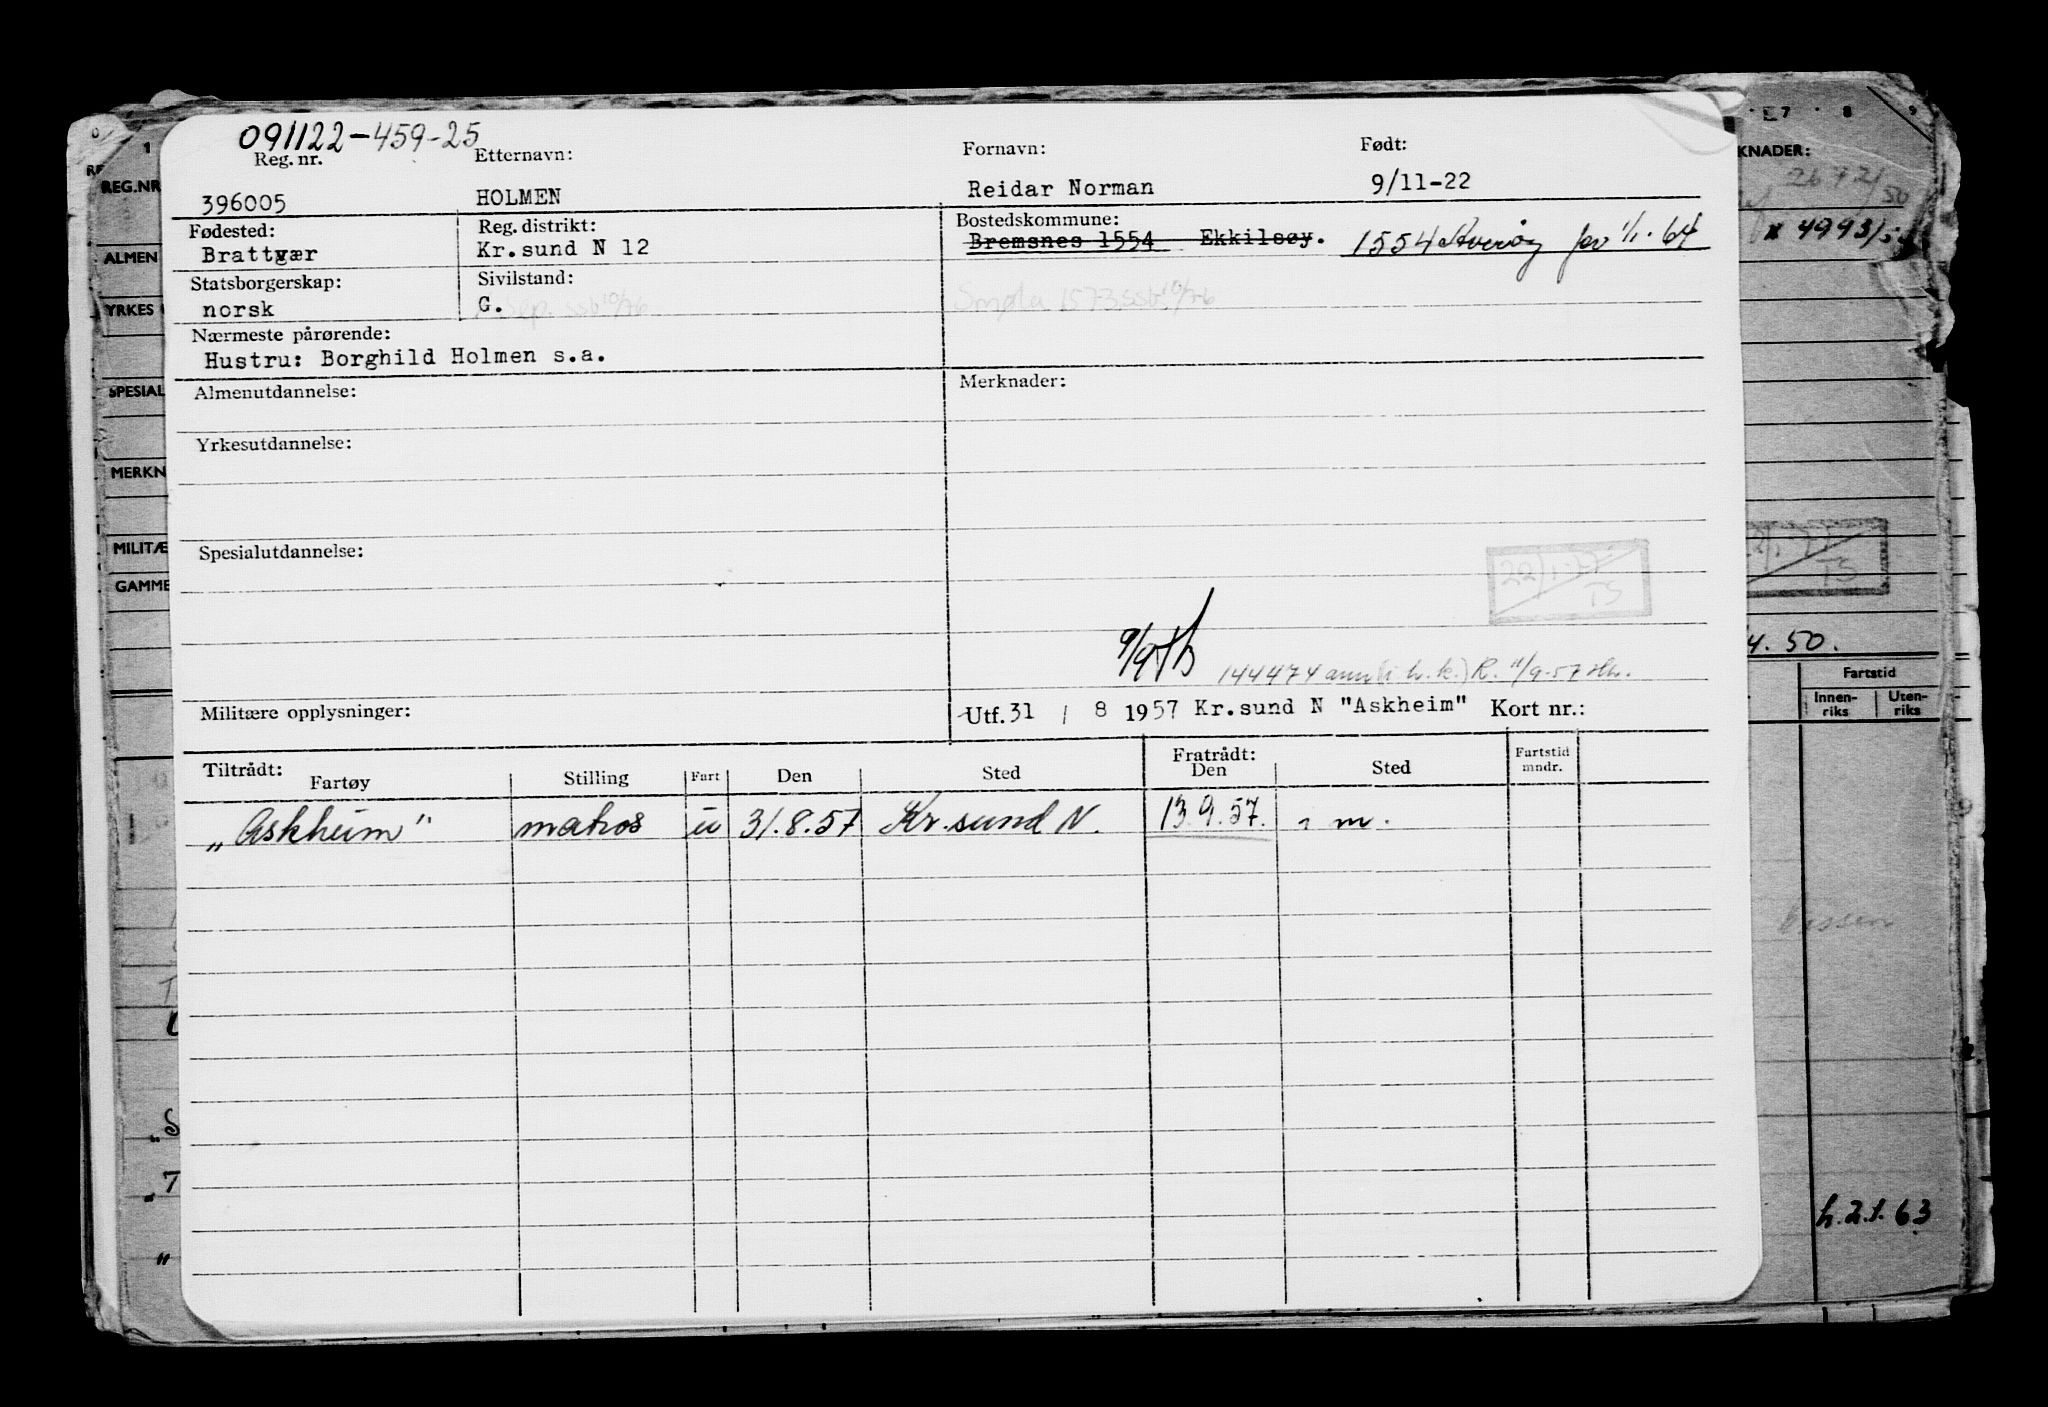 091122-459-25
Reg. nr. Etternavn: Fornavn: Født:
396005 HOLMEN Reidar Norman 9/11-22
Fødested: Reg. distrikt: Bostedskommune:
Brattvær Kr.sund N 12 Bremsnes 1554 Ekkilsøy. 1554 Averøy fra 1/1-64
Statsborgerskap: Sivilstand:
norsk G. Sep. ssb 10/76 Smøla 1573 ssb 10/76
Nærmeste pårørende:
Hustru: Borghild Holmen s.a.
Almenutdannelse: Merknader:
Yrkesutdannelse:
Spesialutdannelse:
22/1-77
TS
9/9
144474 ann. (i h.k.) R. 11/9-57
Militære opplysninger: Utf. 31 / 8 1957 Kr.sund N "Askheim" Kort nr.:
Tiltrådt: Fratrådt:
Fartøy Stilling Fart Den Sted Den Sted Fartstid mndr.
"Askheim" matros u 31.8.57 Kr.sund N. 13.9.57. m.
0 1 7 8 9
REG.NR
KNADER:
2672/50
4993/
ALMEN
YRKES
SPESIAL
MERKN
MILITÆ
GAMME
TS
4.50.
Fartstid
Innen-riks Uten-riks
h.2.1.63